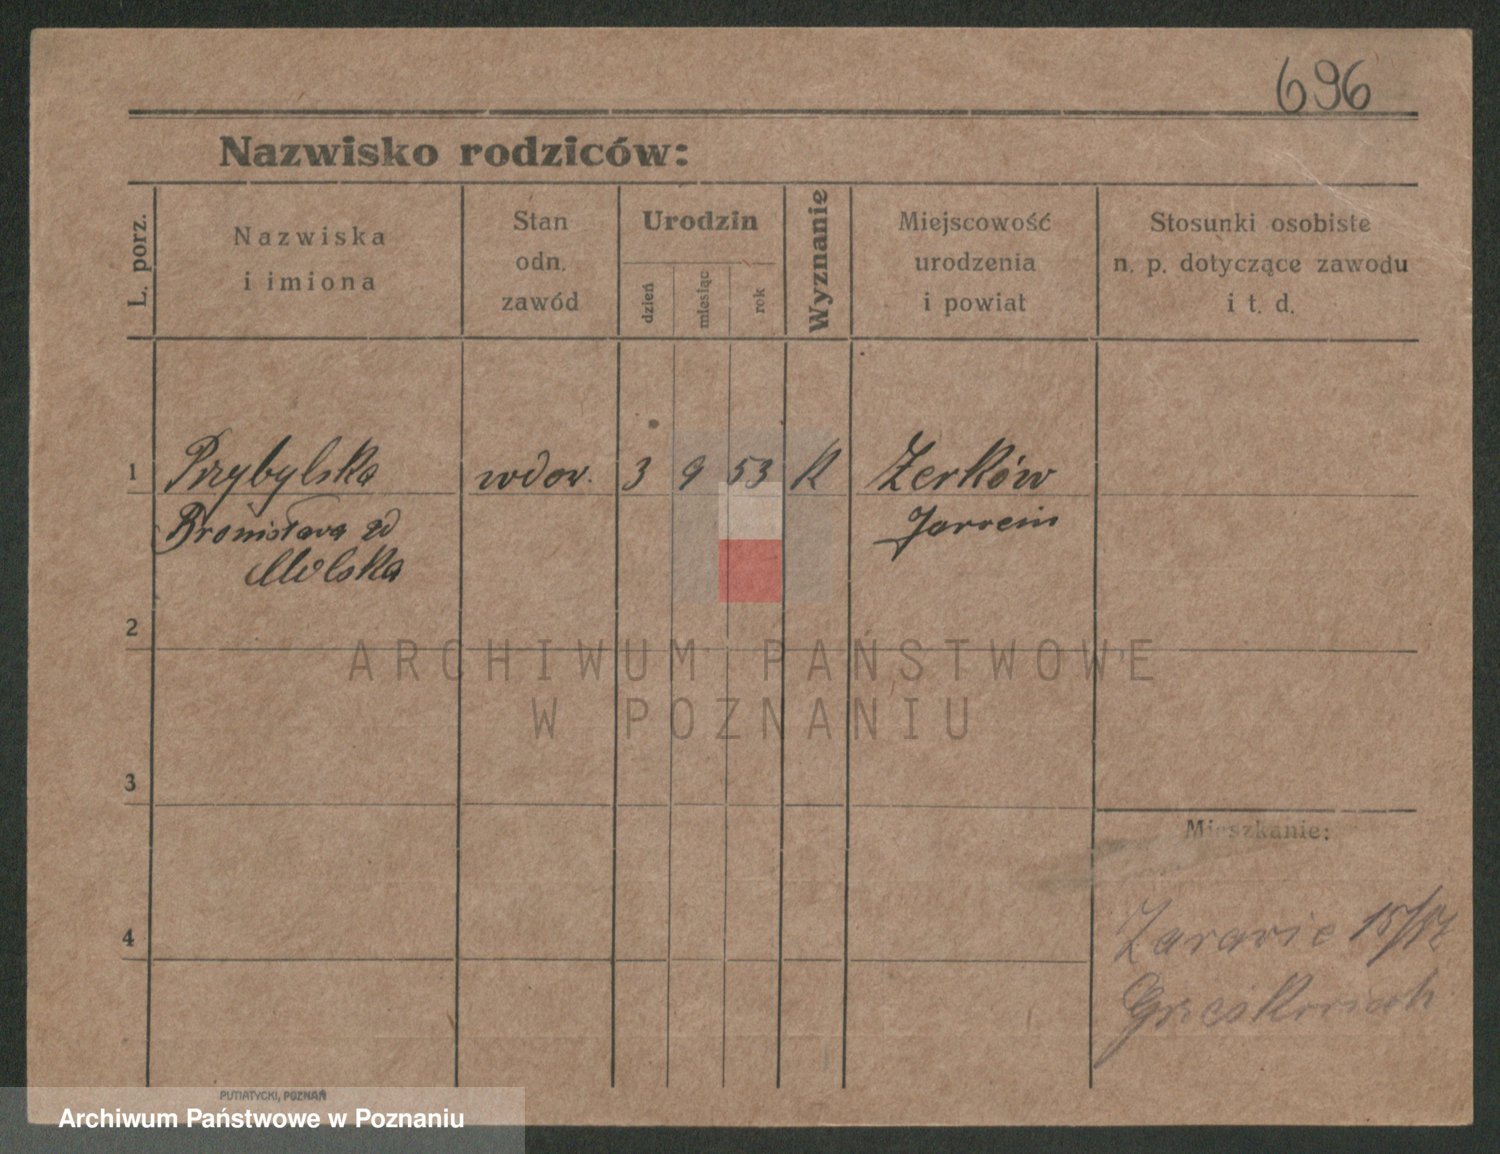 696
Nazwisko rodziców:
L. porz.
Nazwiska
i imiona
Stan
odn.
zawód
Urodzin
dzień
miesiąc
rok
Wyznanie
Miejscowość
urodzenia
i powiat
Stosunki osobiste
n. p. dotyczące zawodu
i t. d.
1 Przybylska wdow. 3 9 53 K Żerków
Bronisława Jarocin
Molska
2
3
4
Mieszkanie:
Żurawie 15/
ARCHIWUM PAŃSTWOWE
W POZNANIU
PUTIATYCKI, POZNAŃ
Archiwum Państwowe w Poznaniu